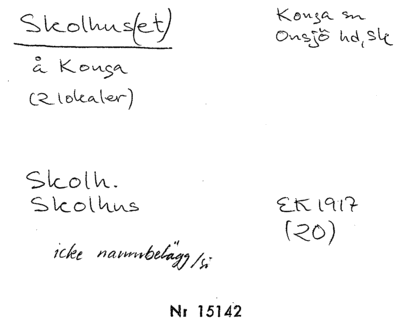 Skolhus(et)
Konga sn
Onsjö hd, Sk
å Konga
(2 lokaler)
Skolh.
Skolhus
EK 1917
(20)
icke namnbelägg/si
Nr 15142